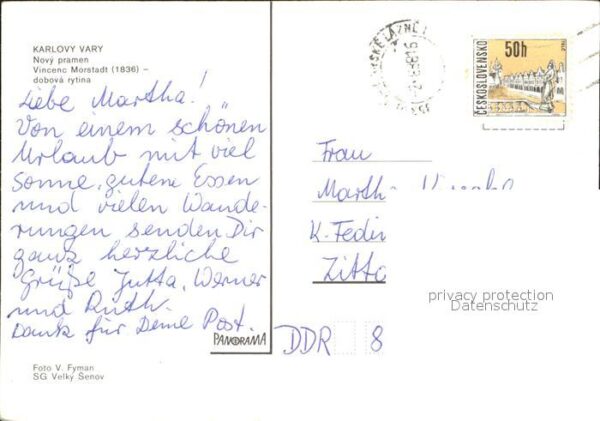 KARLOVY VARY
Nový pramen
Vincenc Morstadt (1836) –
dobová rytina
Liebe Martha!
Von einem schönen
Urlaub mit viel
Sonne, gutem Essen
und vielen Wande-
rungen senden Dir
ganz herzliche
Grüße Jutta, Werner
und Ruth.
Dank für Deine Post.
Foto V. Fyman
SG Velký Šenov
PANORAMA
ČESKOSLOVENSKO
50h
Frau
Martha
K.-Fedin
Zitta
DDR 8
privacy protection
Datenschutz